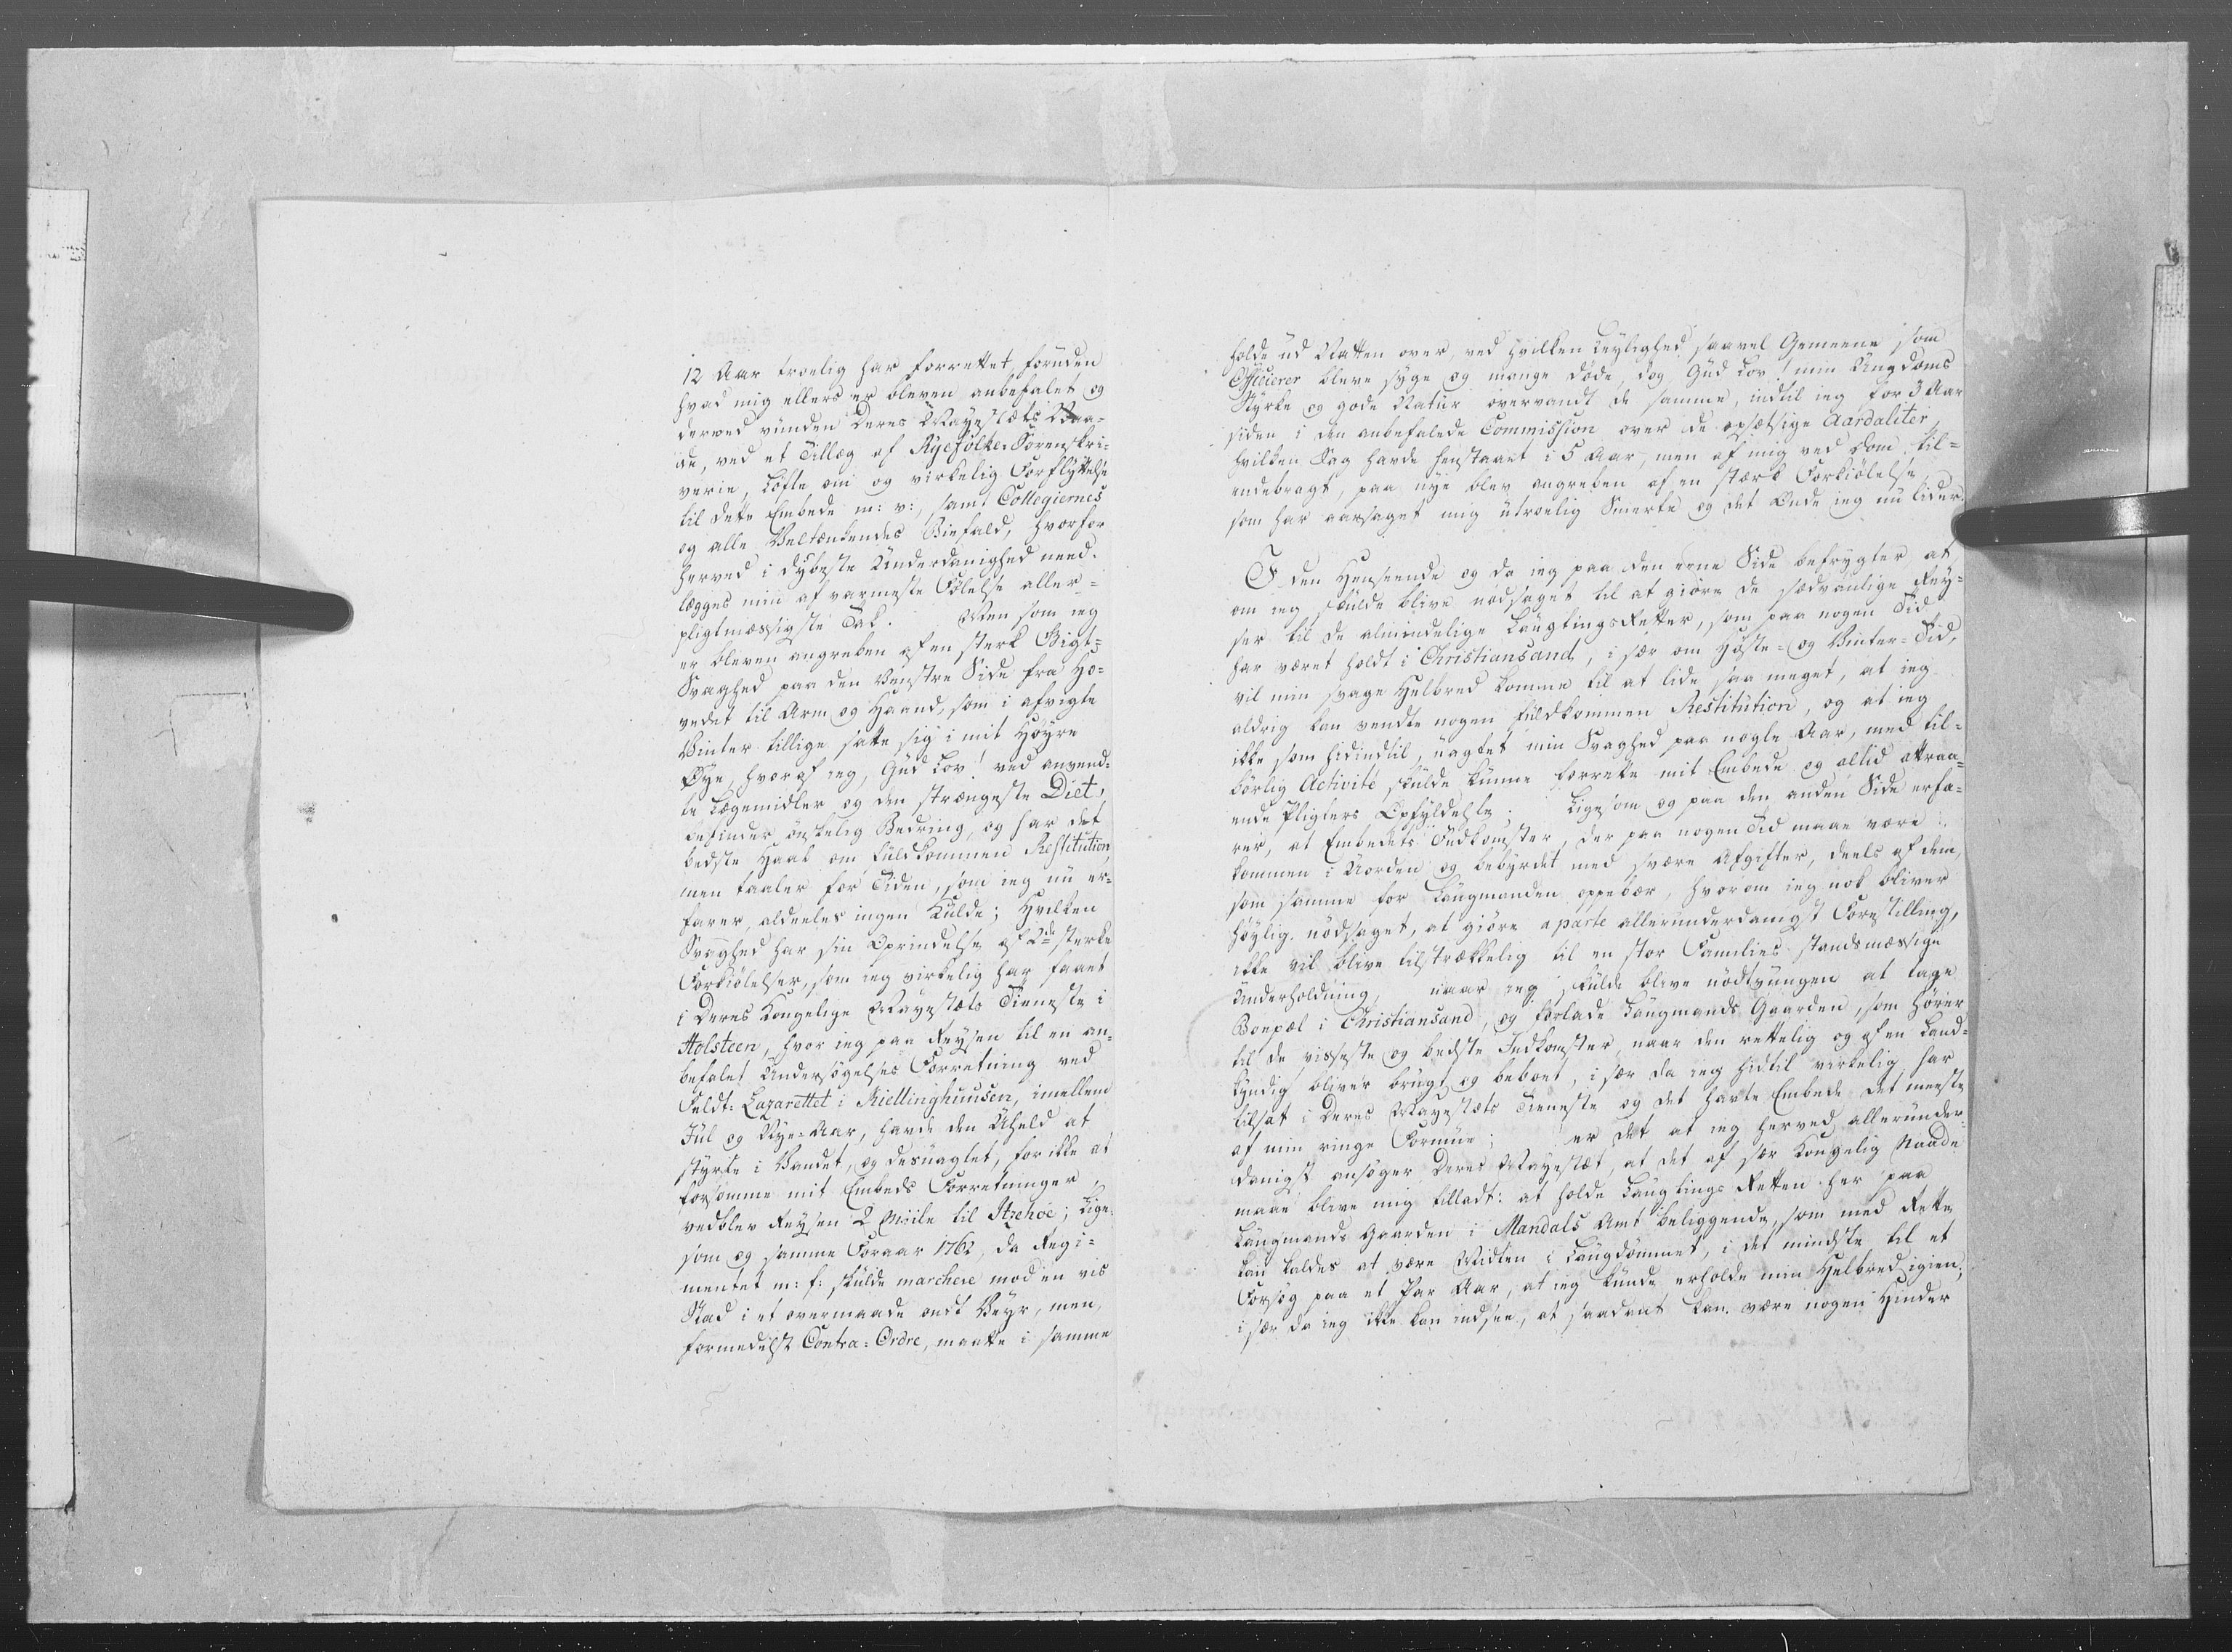 12 Aar troelig har forrettet, foruden
hvad mig ellers er bleven anbefalet og
derved vunden Deres Mayestæts Naa-
de, ved et Tillæg af Ryefylke Sorenskri-
verie, Løfte om og virkelig Forflyttelse
til dette Embede m: v:, samt Collegiernes
og alle Veltænkendes Biefald, hvorfor
herved i dybeste Underdanighed ned-
lægges min af varmeste Følelse aller-
pligtmæssigste Tak. Men som ieg
er bleven angreben af en sterk Gigt-
Svaghed paa den Venstre Side fra Ho-
vedet til Arm og Haand, som i afvigte
Vinter tillige satte sig i mit Høyre
Øye, hvoraf ieg, Gud Lov! ved anvend-
te Lægemidler og den strængeste Diet,
befinder ønskelig Bedring, og har det
bedste Haab om fuldkommen Restitution,
men taaler for Tiden, som ieg nu er-
farer, aldeeles ingen Kulde; Hvilken
Svaghed har sin Oprindelse af 2de sterke
Forkiølelser, som ieg virkelig har faaet
i Deres Kongelige Mayestæts Tieneste i
Holsteen, hvor ieg paa Reysen til en an-
befalet Undersøgelses Forretning ved
Feldt-Lazarettet i Kiellinghuusen, imellem
Jul og Nye-Aar, havde den Uheld at
styrte i Vandet, og desuagtet, for ikke at
forsømme mit Embeds Forretninger,
vedblev Reysen 2 Miile til Itzehoe; Lige-
som og samme Foraar 1762, da Regi-
mentet m: f: skulde marchere mod en vis
Stad i et overmaade ondt Veyr, men,
formedelst Contra-Ordre, maatte i samme
holde ud Natten over, ved hvilken Leylighed saavel Gemeene som
Officierer bleve syge og mange døde, dog Gud Lov! min Ungdoms
Styrke og gode Natur overvandt de samme, indtil ieg for 3 Aar
siden i den anbefalede Commission over de opsætsige Aardaliter,
hvilken Sag havde henstaaet i 5 Aar, men af mig ved Dom til-
endebragt, paa nye blev angreben af en stærk Forkiølelse,
som har aarsaget mig utroelig Smerte og det Onde ieg nu lider.
I den Henseende og da ieg paa den eene Side befrygter, at
om ieg skulde blive nødsaget til at giøre de sædvanlige Rey-
ser til de almindelige Laugtings Retter, som paa nogen Tid
har været holdt i Christiansand, i sær om Høste- og Vinter-Tid,
vil min svage Helbred komme til at lide saa meget, at ieg
aldrig kan vendte nogen fuldkommen Restitution, og at ieg
ikke som hidindtil, uagtet min Svaghed paa nogle Aar, med til-
børlig Activité skulde kunne forrette mit Embede og altid attraa-
ende Pligters Opfyldelse; Ligesom og paa den anden Side erfa-
rer, at Embedets Indkomster, der paa nogen Tid maae være
kommen i Uorden og bebyrdet med svære Afgifter, deels af dem,
som samme for Laugmanden oppebær, hvorom ieg nok bliver
høylig nødsaget, at giøre aparte allerunderdanigst Forestilling,
ikke vil blive tilstrækkelig til en stor Families standsmæssige
Underholdning, naar ieg skulde blive nødtvungen at tage
Boepæl i Christiansand, og forlade Laugmands Gaarden, som hører
til de visseste og bedste Indkomster, naar den rettelig og af en Land-
kyndig bliver brugt og beboet, i sær da ieg hidtil virkelig har
tilsat i Deres Mayestæts Tieneste og det havte Embede det meeste
af min ringe Formue; er det at ieg herved allerunder-
danigst ansøger Deres Mayestæt, at det af sær Kongelig Naade
maae blive mig tilladt: at holde Laugtings Retten her paa
Laugmands Gaarden i Mandals Amt beliggende, som med Rette
kan kaldes at være Midten i Laugdømmet, i det mindste til et
Forsøg paa et Par Aar, at ieg kunde erholde min Helbred igien;
i sær da ieg ikke kan indsee, at saadant kan være nogen Hinder